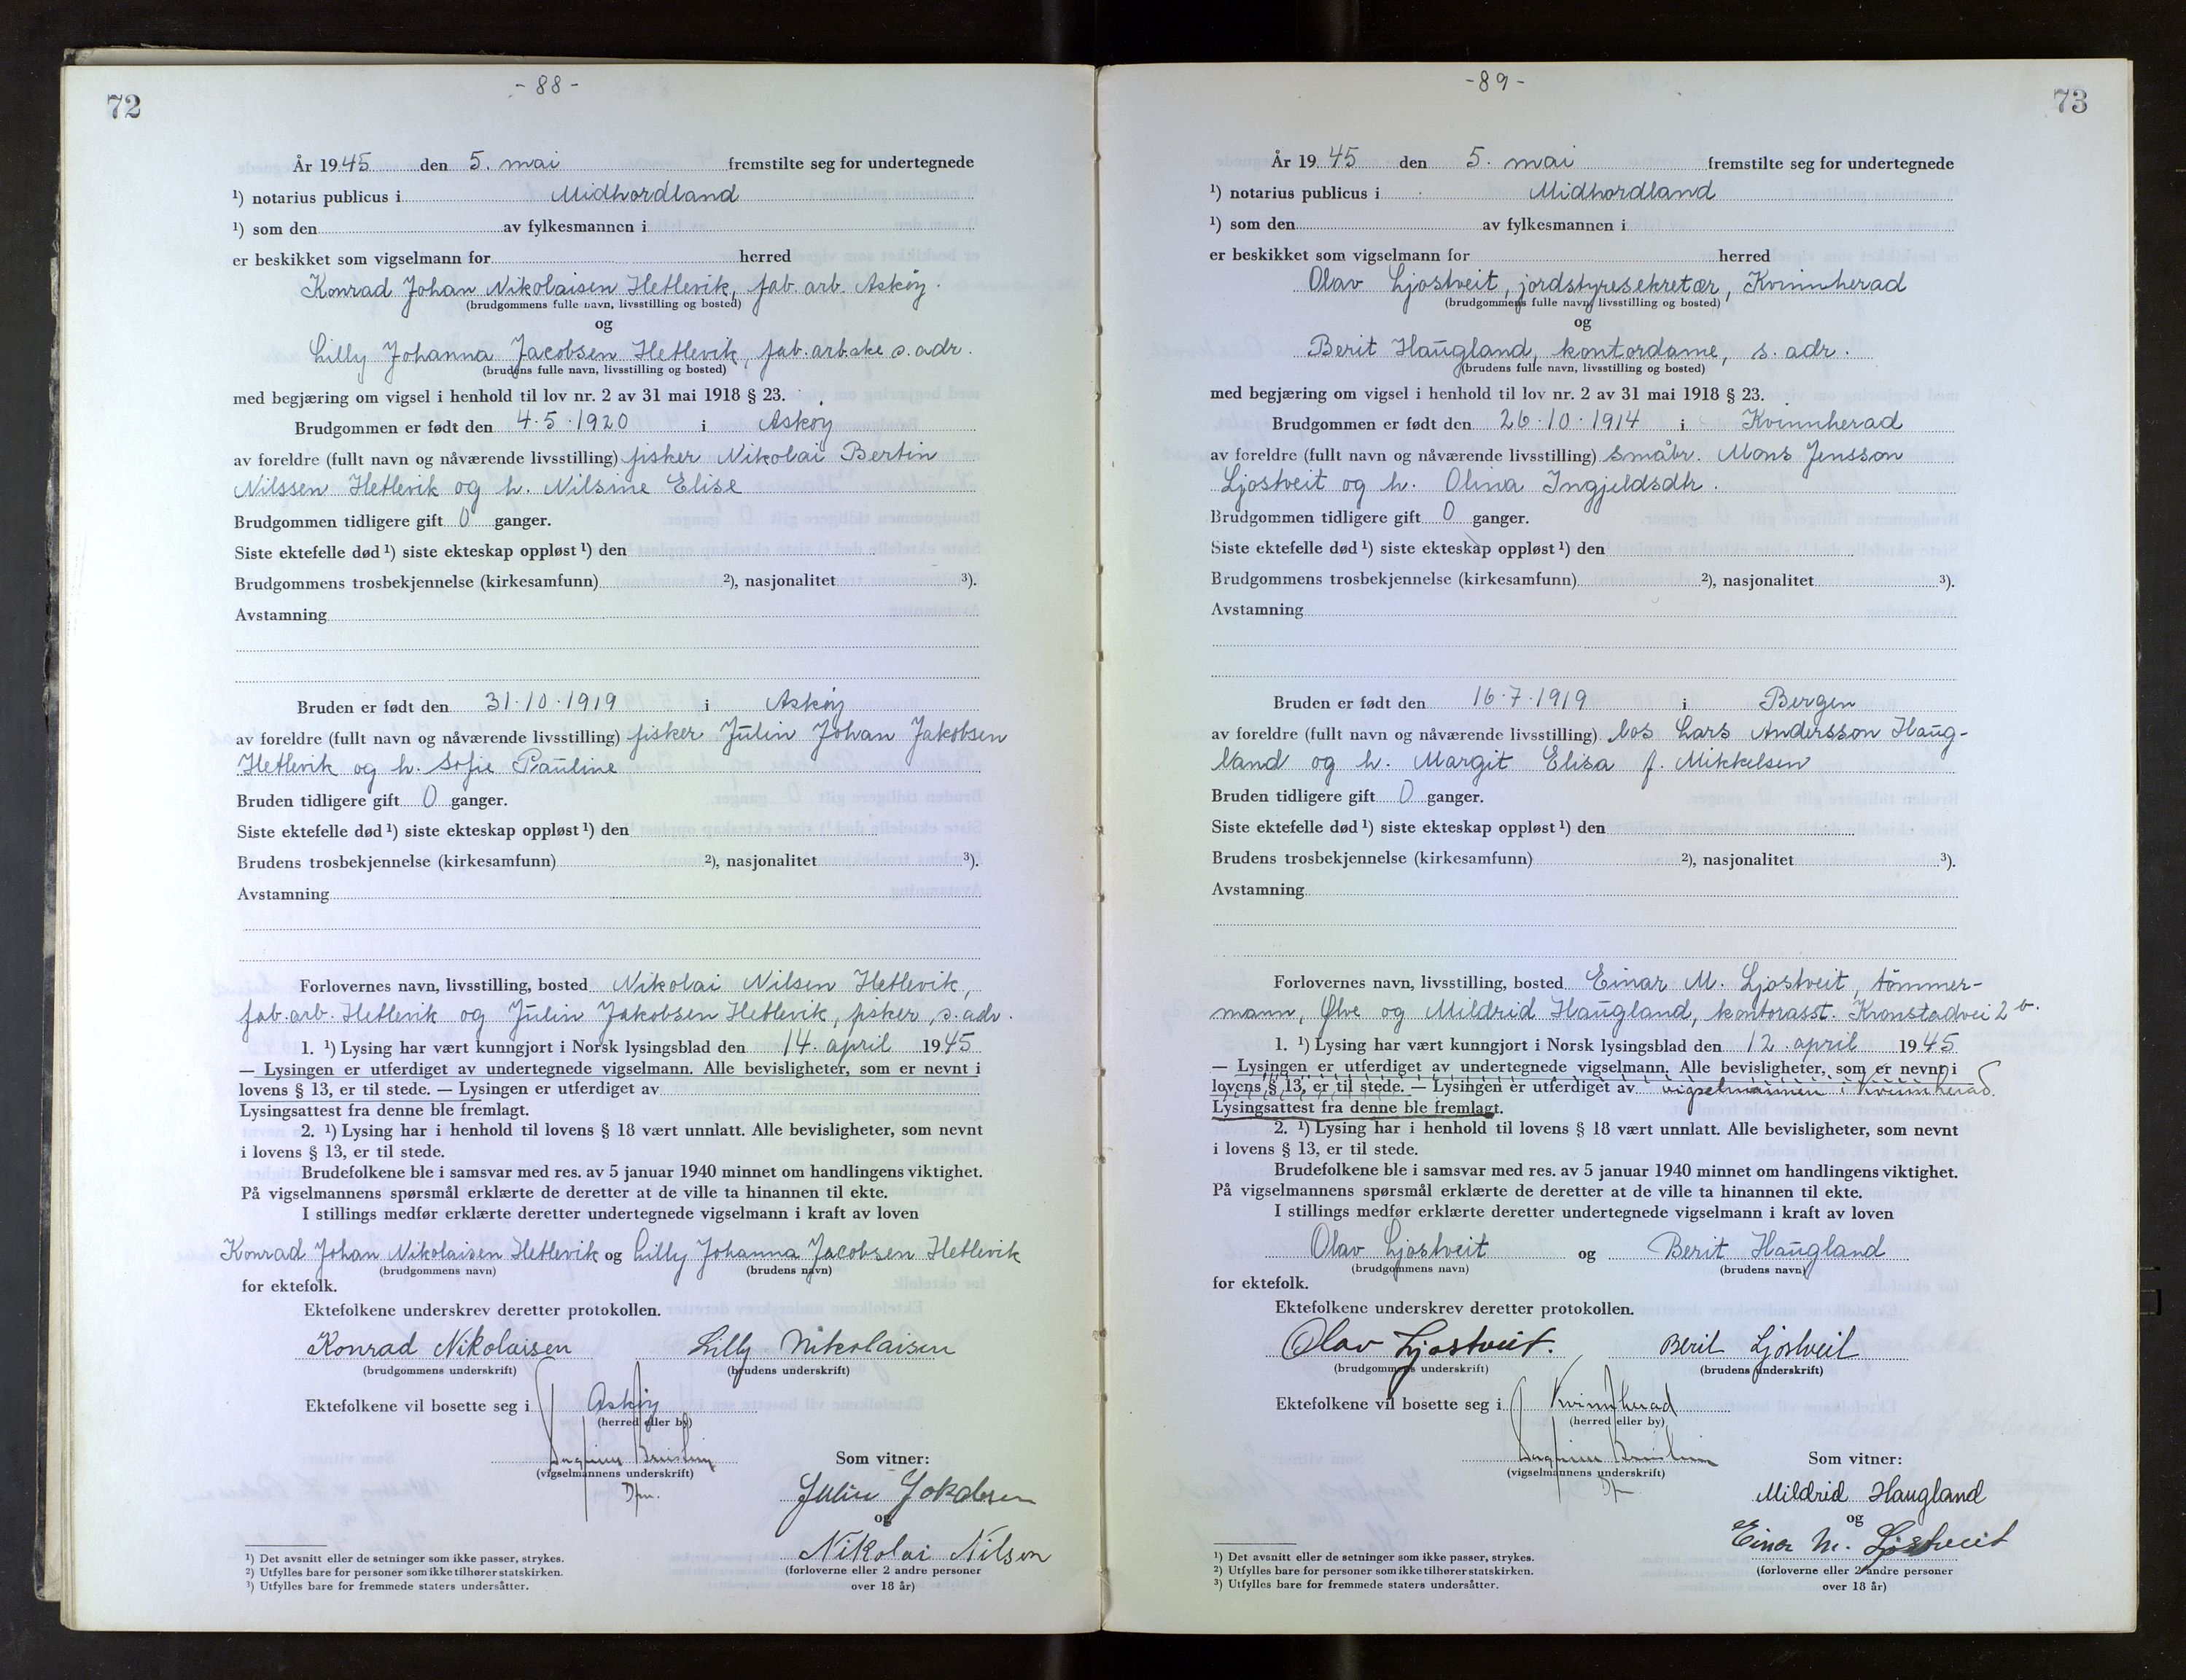 - 88 -
72
År 1945 den 5. mai fremstilte seg for undertegnede
¹) notarius publicus i Midhordland
¹) som den av fylkesmannen i
er beskikket som vigselmann for herred
Konrad Johan Nikolaisen Hetlevik, fab. arb. Askøy.
(brudgommens fulle navn, livsstilling og bosted)
og
Lilly Johanna Jacobsen Hetlevik, fab. arb.ske s. adr.
(brudens fulle navn, livsstilling og bosted)
med begjæring om vigsel i henhold til lov nr. 2 av 31 mai 1918 § 23.
Brudgommen er født den 4·5·1920 i Askøy
av foreldre (fullt navn og nåværende livsstilling) fisker Nikolai Bertin
Nilssen Hetlevik og h. Nilsine Elise
Brudgommen tidligere gift 0 ganger.
Siste ektefelle død ¹) siste ekteskap oppløst ¹) den
Brudgommens trosbekjennelse (kirkesamfunn) ²), nasjonalitet ³).
Avstamning
Bruden er født den 31·10·1919 i Askøy
av foreldre (fullt navn og nåværende livsstilling) fisker Julin Johan Jakobsen
Hetlevik og h. Sofie Pauline
Bruden tidligere gift 0 ganger.
Siste ektefelle død ¹) siste ekteskap oppløst ¹) den
Brudens trosbekjennelse (kirkesamfunn) ²), nasjonalitet ³).
Avstamning
Forlovernes navn, livsstilling, bosted Nikolai Nilsen Hetlevik,
fab. arb. Hetlevik og Julin Jakobsen Hetlevik, fisker, s. adr.
1. ¹) Lysing har vært kunngjort i Norsk lysingsblad den 14. april 1945
— Lysingen er utferdiget av undertegnede vigselmann. Alle bevisligheter, som er nevnt i
lovens § 13, er til stede. — Lysingen er utferdiget av
Lysingsattest fra denne ble fremlagt.
2. ¹) Lysing har i henhold til lovens § 18 vært unnlatt. Alle bevisligheter, som nevnt
i lovens § 13, er til stede.
Brudefolkene ble i samsvar med res. av 5 januar 1940 minnet om handlingens viktighet.
På vigselmannens spørsmål erklærte de deretter at de ville ta hinannen til ekte.
I stillings medfør erklærte deretter undertegnede vigselmann i kraft av loven
Konrad Johan Nikolaisen Hetlevik og Lilly Johanna Jacobsen Hetlevik
(brudgommens navn) (brudens navn)
for ektefolk.
Ektefolkene underskrev deretter protokollen.
Konrad Nikolaisen Lilly Nikolaisen
(brudgommens underskrift) (brudens underskrift)
Ektefolkene vil bosette seg i Askøy
(herred eller by)
Som vitner:
(vigselmannens underskrift)
Dfm.
Julin Jakobsen
og
Nikolai Nilsen
(forloverne eller 2 andre personer
over 18 år)
¹) Det avsnitt eller de setninger som ikke passer, strykes.
²) Utfylles bare for personer som ikke tilhører statskirken.
³) Utfylles bare for fremmede staters undersåtter.
- 89 -
73
År 1945 den 5. mai fremstilte seg for undertegnede
¹) notarius publicus i Midhordland
¹) som den av fylkesmannen i
er beskikket som vigselmann for herred
Olav Ljostveit, jordstyresekretær, Kvinnherad
(brudgommens fulle navn, livsstilling og bosted)
og
Berit Haugland, kontordame, s. adr.
(brudens fulle navn, livsstilling og bosted)
med begjæring om vigsel i henhold til lov nr. 2 av 31 mai 1918 § 23.
Brudgommen er født den 26·10·1914 i Kvinnherad
av foreldre (fullt navn og nåværende livsstilling) småbr. Mons Jensson
Ljostveit og h. Olina Ingjeldsdtr.
Brudgommen tidligere gift 0 ganger.
Siste ektefelle død ¹) siste ekteskap oppløst ¹) den
Brudgommens trosbekjennelse (kirkesamfunn) ²), nasjonalitet ³).
Avstamning
Bruden er født den 16·7·1919 i Bergen
av foreldre (fullt navn og nåværende livsstilling) los Lars Andersson Haug-
land og h. Margit Elisa f. Mikkelsen
Bruden tidligere gift 0 ganger.
Siste ektefelle død ¹) siste ekteskap oppløst ¹) den
Brudens trosbekjennelse (kirkesamfunn) ²), nasjonalitet ³).
Avstamning
Forlovernes navn, livsstilling, bosted Einar M. Ljostveit, tømmer-
mann, Ølve og Mildrid Haugland, kontorasst. Kronstadvei 2 b.
1. ¹) Lysing har vært kunngjort i Norsk lysingsblad den 12. april 1945
— Lysingen er utferdiget av undertegnede vigselmann. Alle bevisligheter, som er nevnt i
lovens § 13, er til stede. — Lysingen er utferdiget av vigselmannen i Kvinnherad.
Lysingsattest fra denne ble fremlagt.
2. ¹) Lysing har i henhold til lovens § 18 vært unnlatt. Alle bevisligheter, som nevnt
i lovens § 13, er til stede.
Brudefolkene ble i samsvar med res. av 5 januar 1940 minnet om handlingens viktighet.
På vigselmannens spørsmål erklærte de deretter at de ville ta hinannen til ekte.
I stillings medfør erklærte deretter undertegnede vigselmann i kraft av loven
Olav Ljostveit og Berit Haugland
(brudgommens navn) (brudens navn)
for ektefolk.
Ektefolkene underskrev deretter protokollen.
Olav Ljostveit. Berit Ljostveit
(brudgommens underskrift) (brudens underskrift)
Ektefolkene vil bosette seg i Kvinnherad
(herred eller by)
Som vitner:
(vigselmannens underskrift)
Mildrid Haugland
og
Einar M. Ljostveit
(forloverne eller 2 andre personer
over 18 år)
¹) Det avsnitt eller de setninger som ikke passer, strykes.
²) Utfylles bare for personer som ikke tilhører statskirken.
³) Utfylles bare for fremmede staters undersåtter.